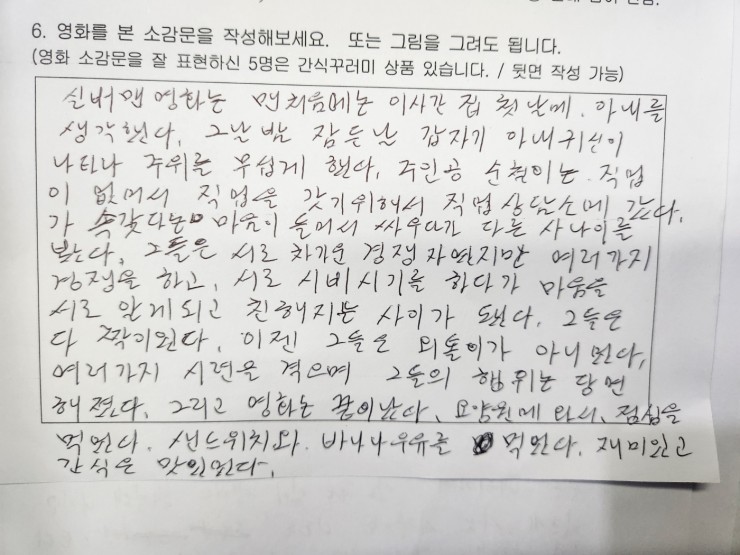 6. 영화를 본 소감문을 작성해보세요. 또는 그림을 그려도 됩니다.
(영화 소감문을 잘 표현하신 5명은 간식꾸러미 상품 있습니다. / 뒷면 작성 가능)
실버맨 영화는 맨처음에는 이사간 집 첫날에. 아내를
생각했다. 그날 밤 잠든날 갑자기 아내귀신이
나타나 주위를 무섭게 했다. 주인공 순철이는 직업
이 없어서 직업을 갖기위해서 직업상담소에 갔다.
가 속갔다는 마음이 들어서 싸우다가 다른 사나이를
봤다. 그들은 서로 차가운 경쟁자였지만 여러가지
경쟁을 하고, 서로 시비시기를 하다가 마음을
서로 알게되고 친해지는 사이가 됐다. 그들은
다 짝이왼다. 이젠 그들은 외톨이가 아니왼다.
여러가지 시련을 격으며 그들의 행위는 당연
해졌다. 그리고 영화는 끝이났다. 요양원에 와서. 점심을
먹왼다. 샌드위치와. 바나나우유를 먹왼다. 재미왼고
간식은 맛왼왼다.